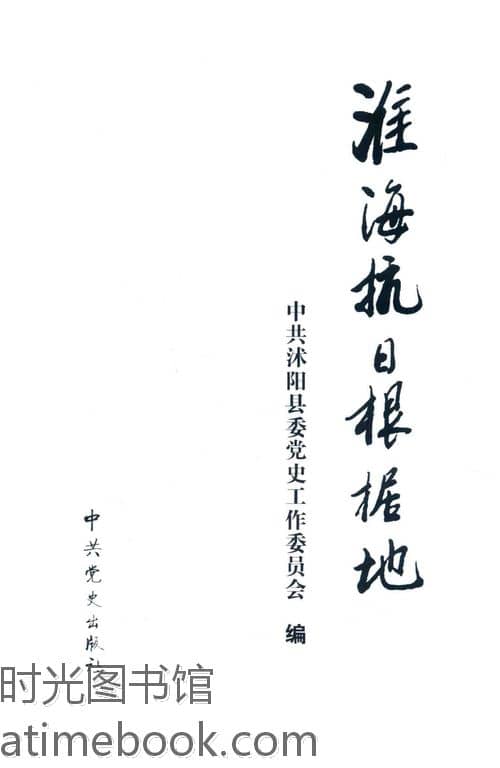 淮海抗日根据地
中共沭阳县委党史工作委员会 编
中共党史出版社
时光图书馆
atimebook.com